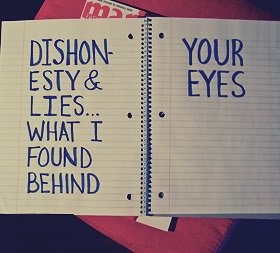 DISHON-
ESTY &
LIES...
WHAT I
FOUND
BEHIND
YOUR
EYES